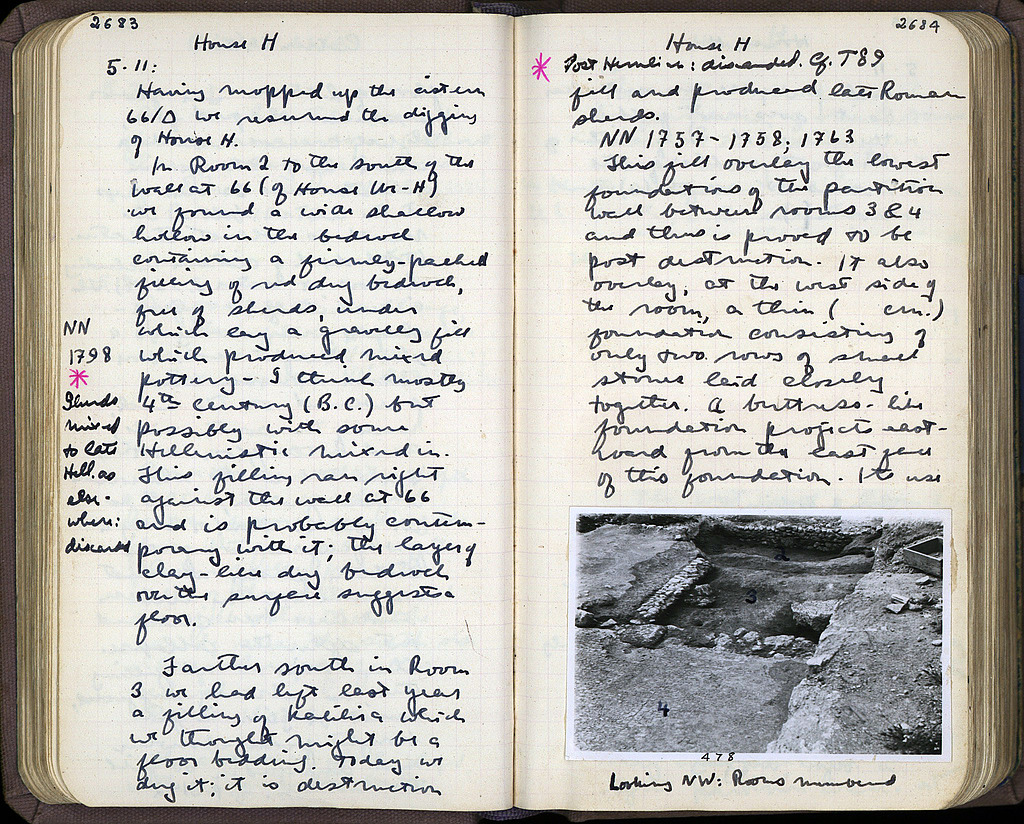 2683
House H
5·11:
Having mopped up the cistern
66/Δ we resumed the digging
of House H.
In Room 2 to the south of the
wall at 66 (of House H)
we found a wide shallow
hollow in the bedrock
containing a firmly-packed
filling of red dug bedrock,
free of sherds, under
which lay a gravelly fill
which produced mixed
pottery - I think mostly
4th century (B.C.) but
possibly with some
Hellenistic mixed in.
This filling ran right
against the wall at 66
and is probably contem-
porary with it; the layer of
clay-like dug bedrock
over the surface suggests a
floor.
Farther south in Room
3 we had left last year
a filling of kalilia which
we thought might be a
floor bedding. Today we
dug it; it is destruction
NN
1798
*
Sherds
mixed
to late
Hell. as
else-
where:
discarded
2684
House H
* Post Herulian: discarded. Cf. T 89
fill and produced late Roman
sherds.
NN 1757-1758; 1763
This fill overlay the lowest
foundations of the partition
wall between rooms 3 & 4
and thus is proved to be
post destruction. It also
overlay, at the west side of
the room, a thin ( cm.)
foundation consisting of
only two rows of small
stones laid closely
together. A buttress-like
foundation projects east-
ward from the east face
of this foundation. Its use
2
3
4
478
Looking NW: Rooms numbered